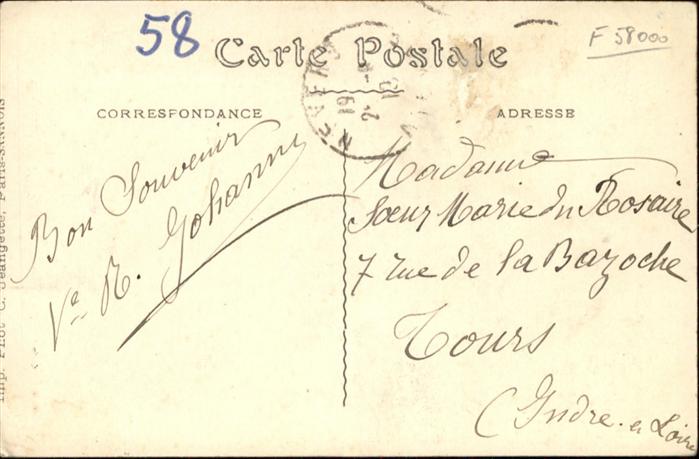 58
F 58000
Carte Postale
CORRESPONDANCE
ADRESSE
Bon Souvenir
Vve R. Johanni
Madame
Sœur Marie du Rosaire
7 rue de la Bazoche
Tours
(Indre-et Loire
NEVERS
Imp. Phot C. Jeangette, Paris-SANNOIS